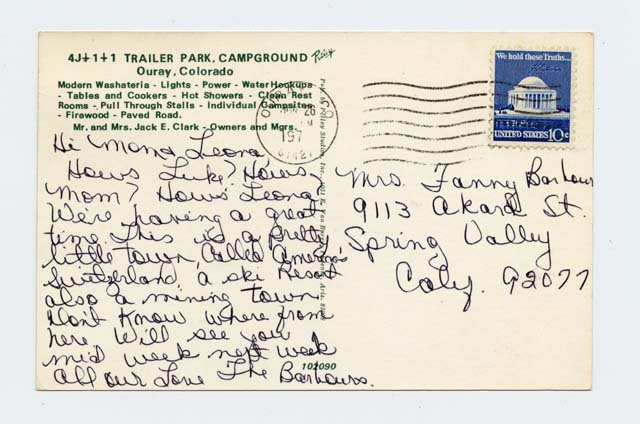 4J+1+1 TRAILER PARK, CAMPGROUND
Ouray, Colorado
Modern Washateria - Lights - Power - Water Hookups
- Tables and Cookers - Hot Showers - Clean Rest
Rooms - Pull Through Stalls - Individual Campsites
- Firewood - Paved Road.
Mr. and Mrs. Jack E. Clark - Owners and Mgrs.
We hold these Truths...
UNITED STATES 10c
26
197
Hi Mom & Leona
Hows Luke? Hows
Mom? Hows Leona
We're having a great
time This is a pretty
little town, Called America's
Switzerland, a ski Resort
also a mining town
Don't Know where from
here Will see you
mid week next week
All our Love The Barhours.
Mrs. Fanny Barhour
9113 Akard St.
Spring Valley
Caly. 92077
102090